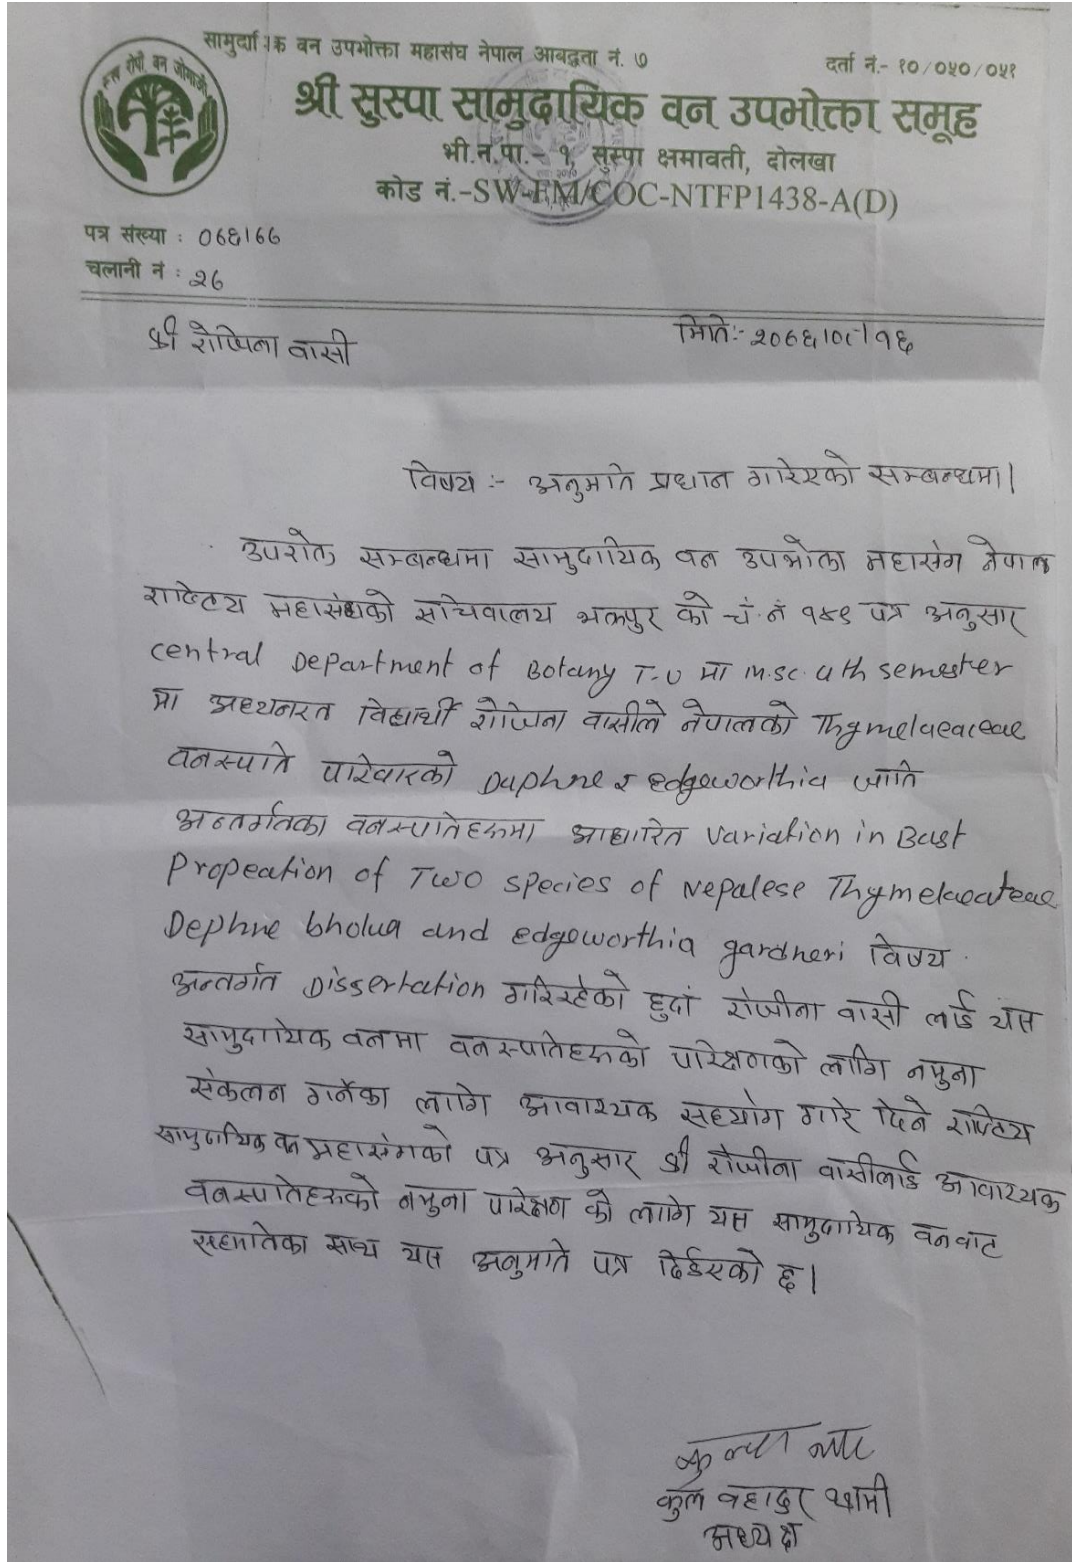 सामुदायिक वन उपभोक्ता महासंघ नेपाल आबद्धता नं. ७
दर्ता नं.- १०/०५०/०५१
श्री सुस्पा सामुदायिक वन उपभोक्ता समूह
भी.न.पा.- १, सुस्पा क्षमावती, दोलखा
कोड नं.-SW-FM/COC-NTFP1438-A(D)
पत्र संख्या : ०७६।७७
चलानी नं : २७
मिति:- २०७६।०८।१६
श्री रोजिना वासी
विषय :- अनुमति प्रधान गरिएको सम्बन्धमा।
उपरोक्त सम्बन्धमा सामुदायिक वन उपभोक्ता महासंग नेपाल
राष्ट्रिय महासंघको सचिवालय भक्तपुर को चं. नं पत्र अनुसार
central Department of Botany T.U मा M.sc. 4th semester
मा अध्यनरत विद्यार्थी रोजिना वासीले नेपालको Thymelaeaceae
वनस्पति परिवारको Daphne र edgeworthia जाति
अन्तर्गतका वनस्पतिहरुमा आधारित variation in Bast
Propeation of Two species of Nepalese Thymelaeateae
Dephne bholua and edgeworthia gardneri विषय
अन्तर्गत Dissertation गरिरहेको हुदां रोजीना वासी लाई यस
सामुदायिक वनमा वनस्पतिहरुको परिक्षणको लागि नमुना
संकलन गर्नका लागि आवाश्यक सहयोग गरि दिने राष्ट्रिय
सामुदायिक वन महासंगको पत्र अनुसार श्री रोजीना वासीलाई आवाश्यक
वनस्पतिहरुको नमुना परिक्षण को लागि यस सामुदायिक वनवाट
सहमतिका साथ यस अनुमति पत्र दिईएको छ।
कुल वहादुर थामी
अध्यक्ष